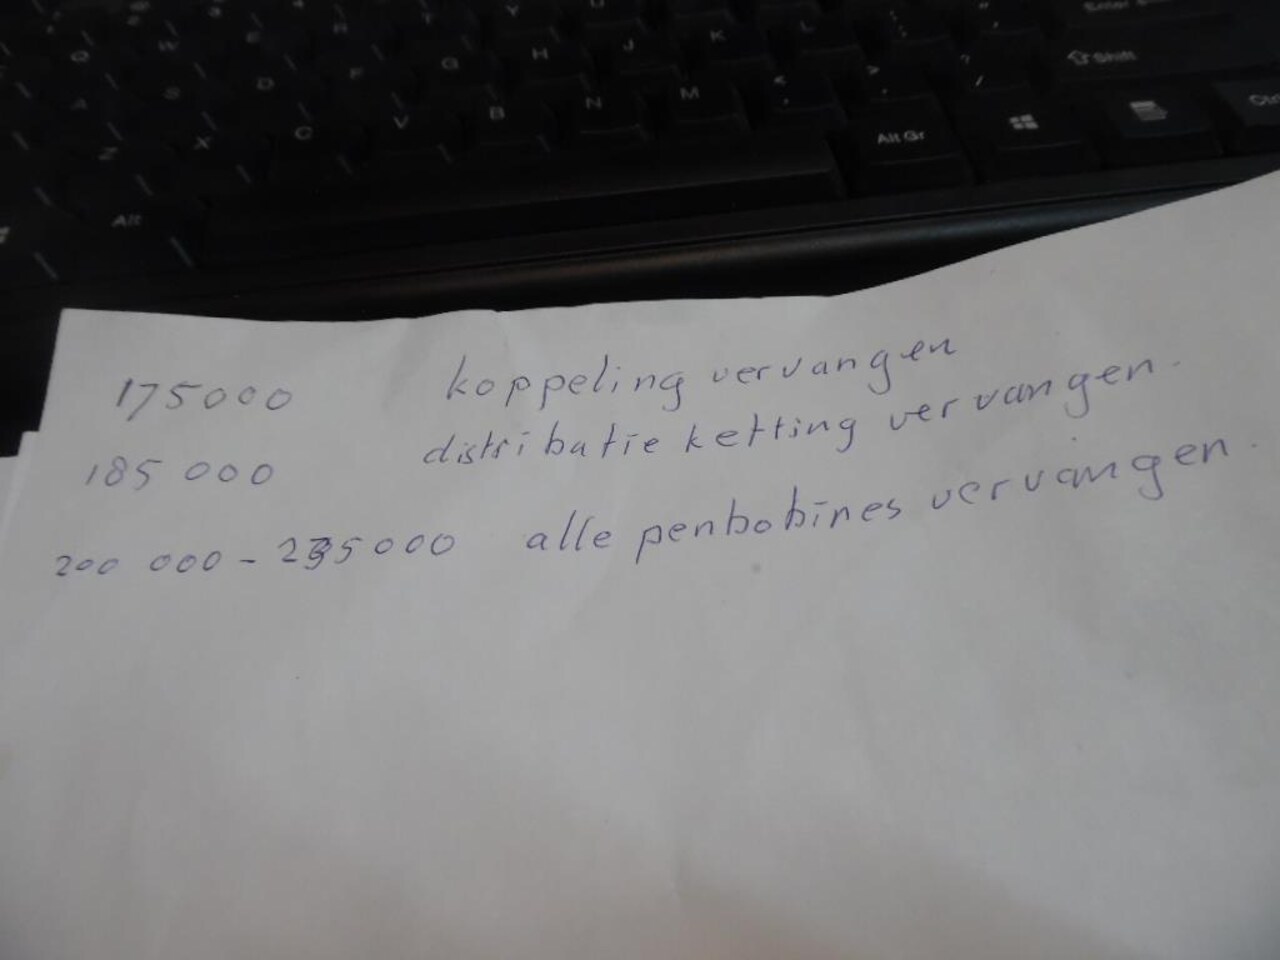 175000 koppeling vervangen
185 000 distributie ketting vervangen.
200 000 - 235000 alle penbobines vervangen.
Alt Gr
Alt
Shift
Z X C V B N M
G H J K L